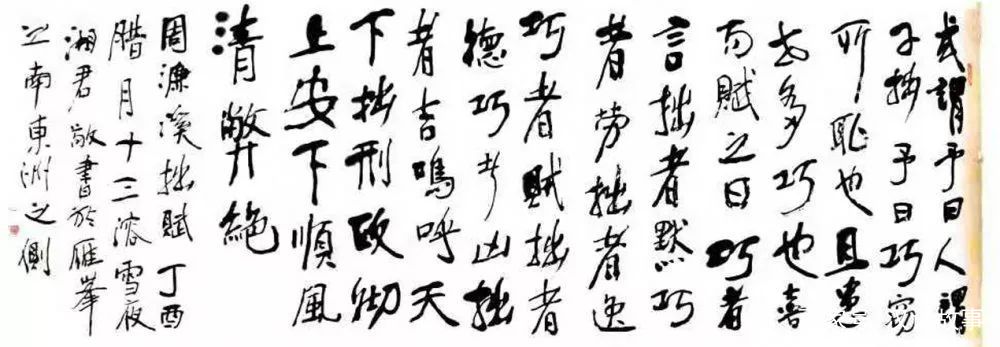 或謂予曰人謂
子拙予曰巧竊
所恥也且患
世多巧也喜
而賦之曰巧者
言拙者默巧
者勞拙者逸
巧者賊拙者
德巧者凶拙
者吉鳴呼天
下拙刑政彻
上安下順風
清弊絕
周濂溪拙賦 丁酉
腊月十三溶雪夜
湘君敬書於雁峯
之南東洲之側
故事